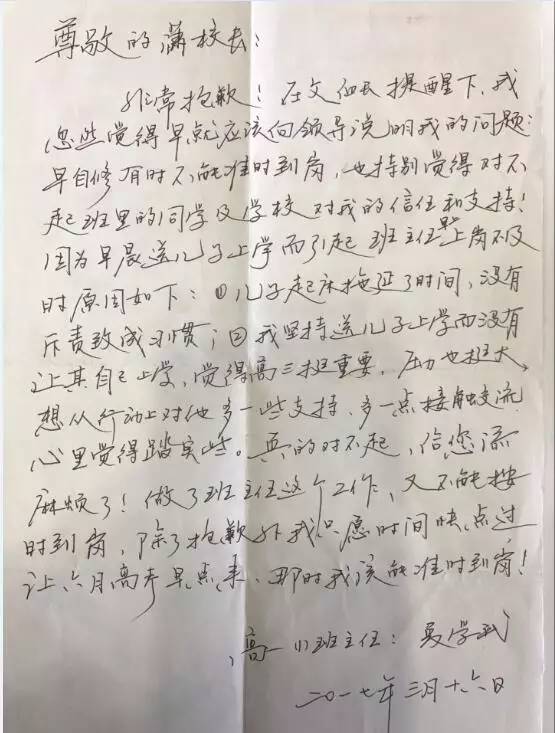 尊敬的潇校长：
非常抱歉！在文 提醒下，我
忽然觉得早就应该向领导说明我的问题：
早自修有时不能准时到岗，也特别觉得对不
起班里的同学及学校对我的信任和支持！
因为早晨送儿子上学而引起班主任早上岗不及
时原因如下：①儿子起床拖延了时间，没有
斥责致成习惯；②我坚持送儿子上学而没有
让其自己上学，觉得高三挺重要，压力也挺大，
想从行动上对他多一些支持、多一点接触交流，
心里觉得踏实些。真的对不起，给您添
麻烦了！做了班主任这个工作，又不能按
时到岗，除了抱歉外我只愿时间快点过，
让六月高考早点来，那时我该能准时到岗！
高一（1）班主任：夏学武
二〇一七年三月十六日